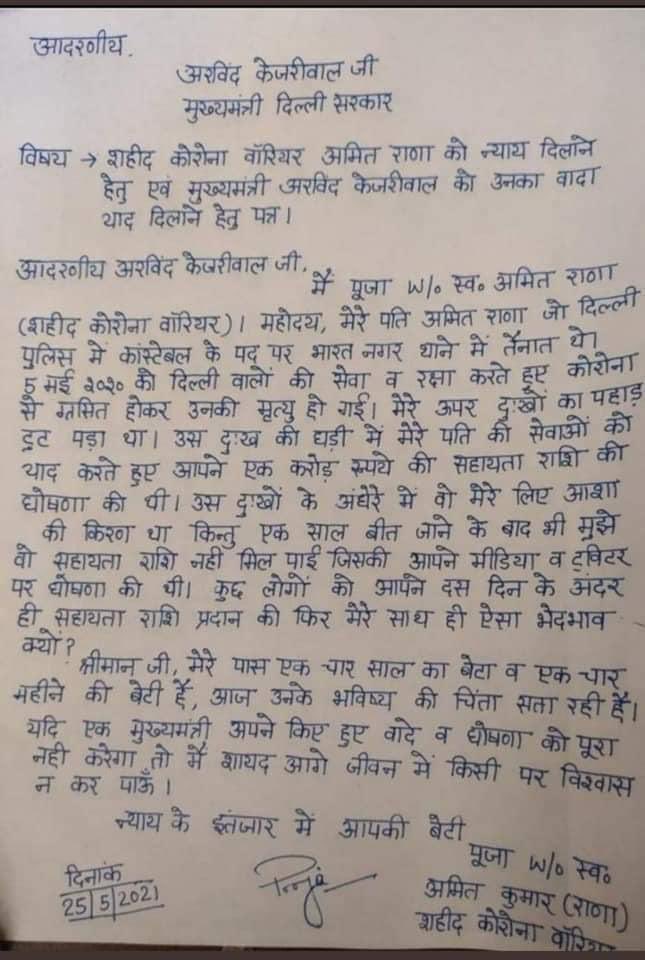 आदरणीय.
अरविंद केजरीवाल जी
मुख्यमंत्री दिल्ली सरकार
विषय → शहीद कोरोना वॉरियर अमित राणा को न्याय दिलाने
हेतु एवं मुख्यमंत्री अरविंद केजरीवाल को उनका वादा
याद दिलाने हेतु पत्र।
आदरणीय अरविंद केजरीवाल जी,
मैं पूजा W/o स्व० अमित राणा
(शहीद कोरोना वॉरियर)। महोदय, मेरे पति अमित राणा जो दिल्ली
पुलिस में कांस्टेबल के पद पर भारत नगर थाने में तैनात थे।
5 मई २०२० को दिल्ली वालों की सेवा व रक्षा करते हुए कोरोना
से ग्रसित होकर उनकी मृत्यु हो गई। मेरे ऊपर दुःखों का पहाड़
टूट पड़ा था। उस दुःख की घड़ी में मेरे पति की सेवाओं को
याद करते हुए आपने एक करोड़ रूपये की सहायता राशि की
घोषणा की थी। उस दुःखों के अंधेरे में वो मेरे लिए आशा
की किरण था किन्तु एक साल बीत जाने के बाद भी मुझे
वो सहायता राशि नहीं मिल पाई जिसकी आपने मीडिया व ट्विटर
पर घोषणा की थी। कुछ लोगों को आपने दस दिन के अंदर
ही सहायता राशि प्रदान की फिर मेरे साथ ही ऐसा भेदभाव
क्यों?
श्रीमान जी, मेरे पास एक चार साल का बेटा व एक चार
महीने की बेटी है, आज उनके भविष्य की चिंता सता रही है।
यदि एक मुख्यमंत्री अपने किए हुए वादे व घोषणा को पूरा
नही करेगा तो मैं शायद आगे जीवन में किसी पर विश्वास
न कर पाऊँ।
न्याय के इंतजार में आपकी बेटी
पूजा W/o स्व०
अमित कुमार (राणा)
शहीद कोरोना वॉरियर
दिनांक
25/5/2021
Pooja